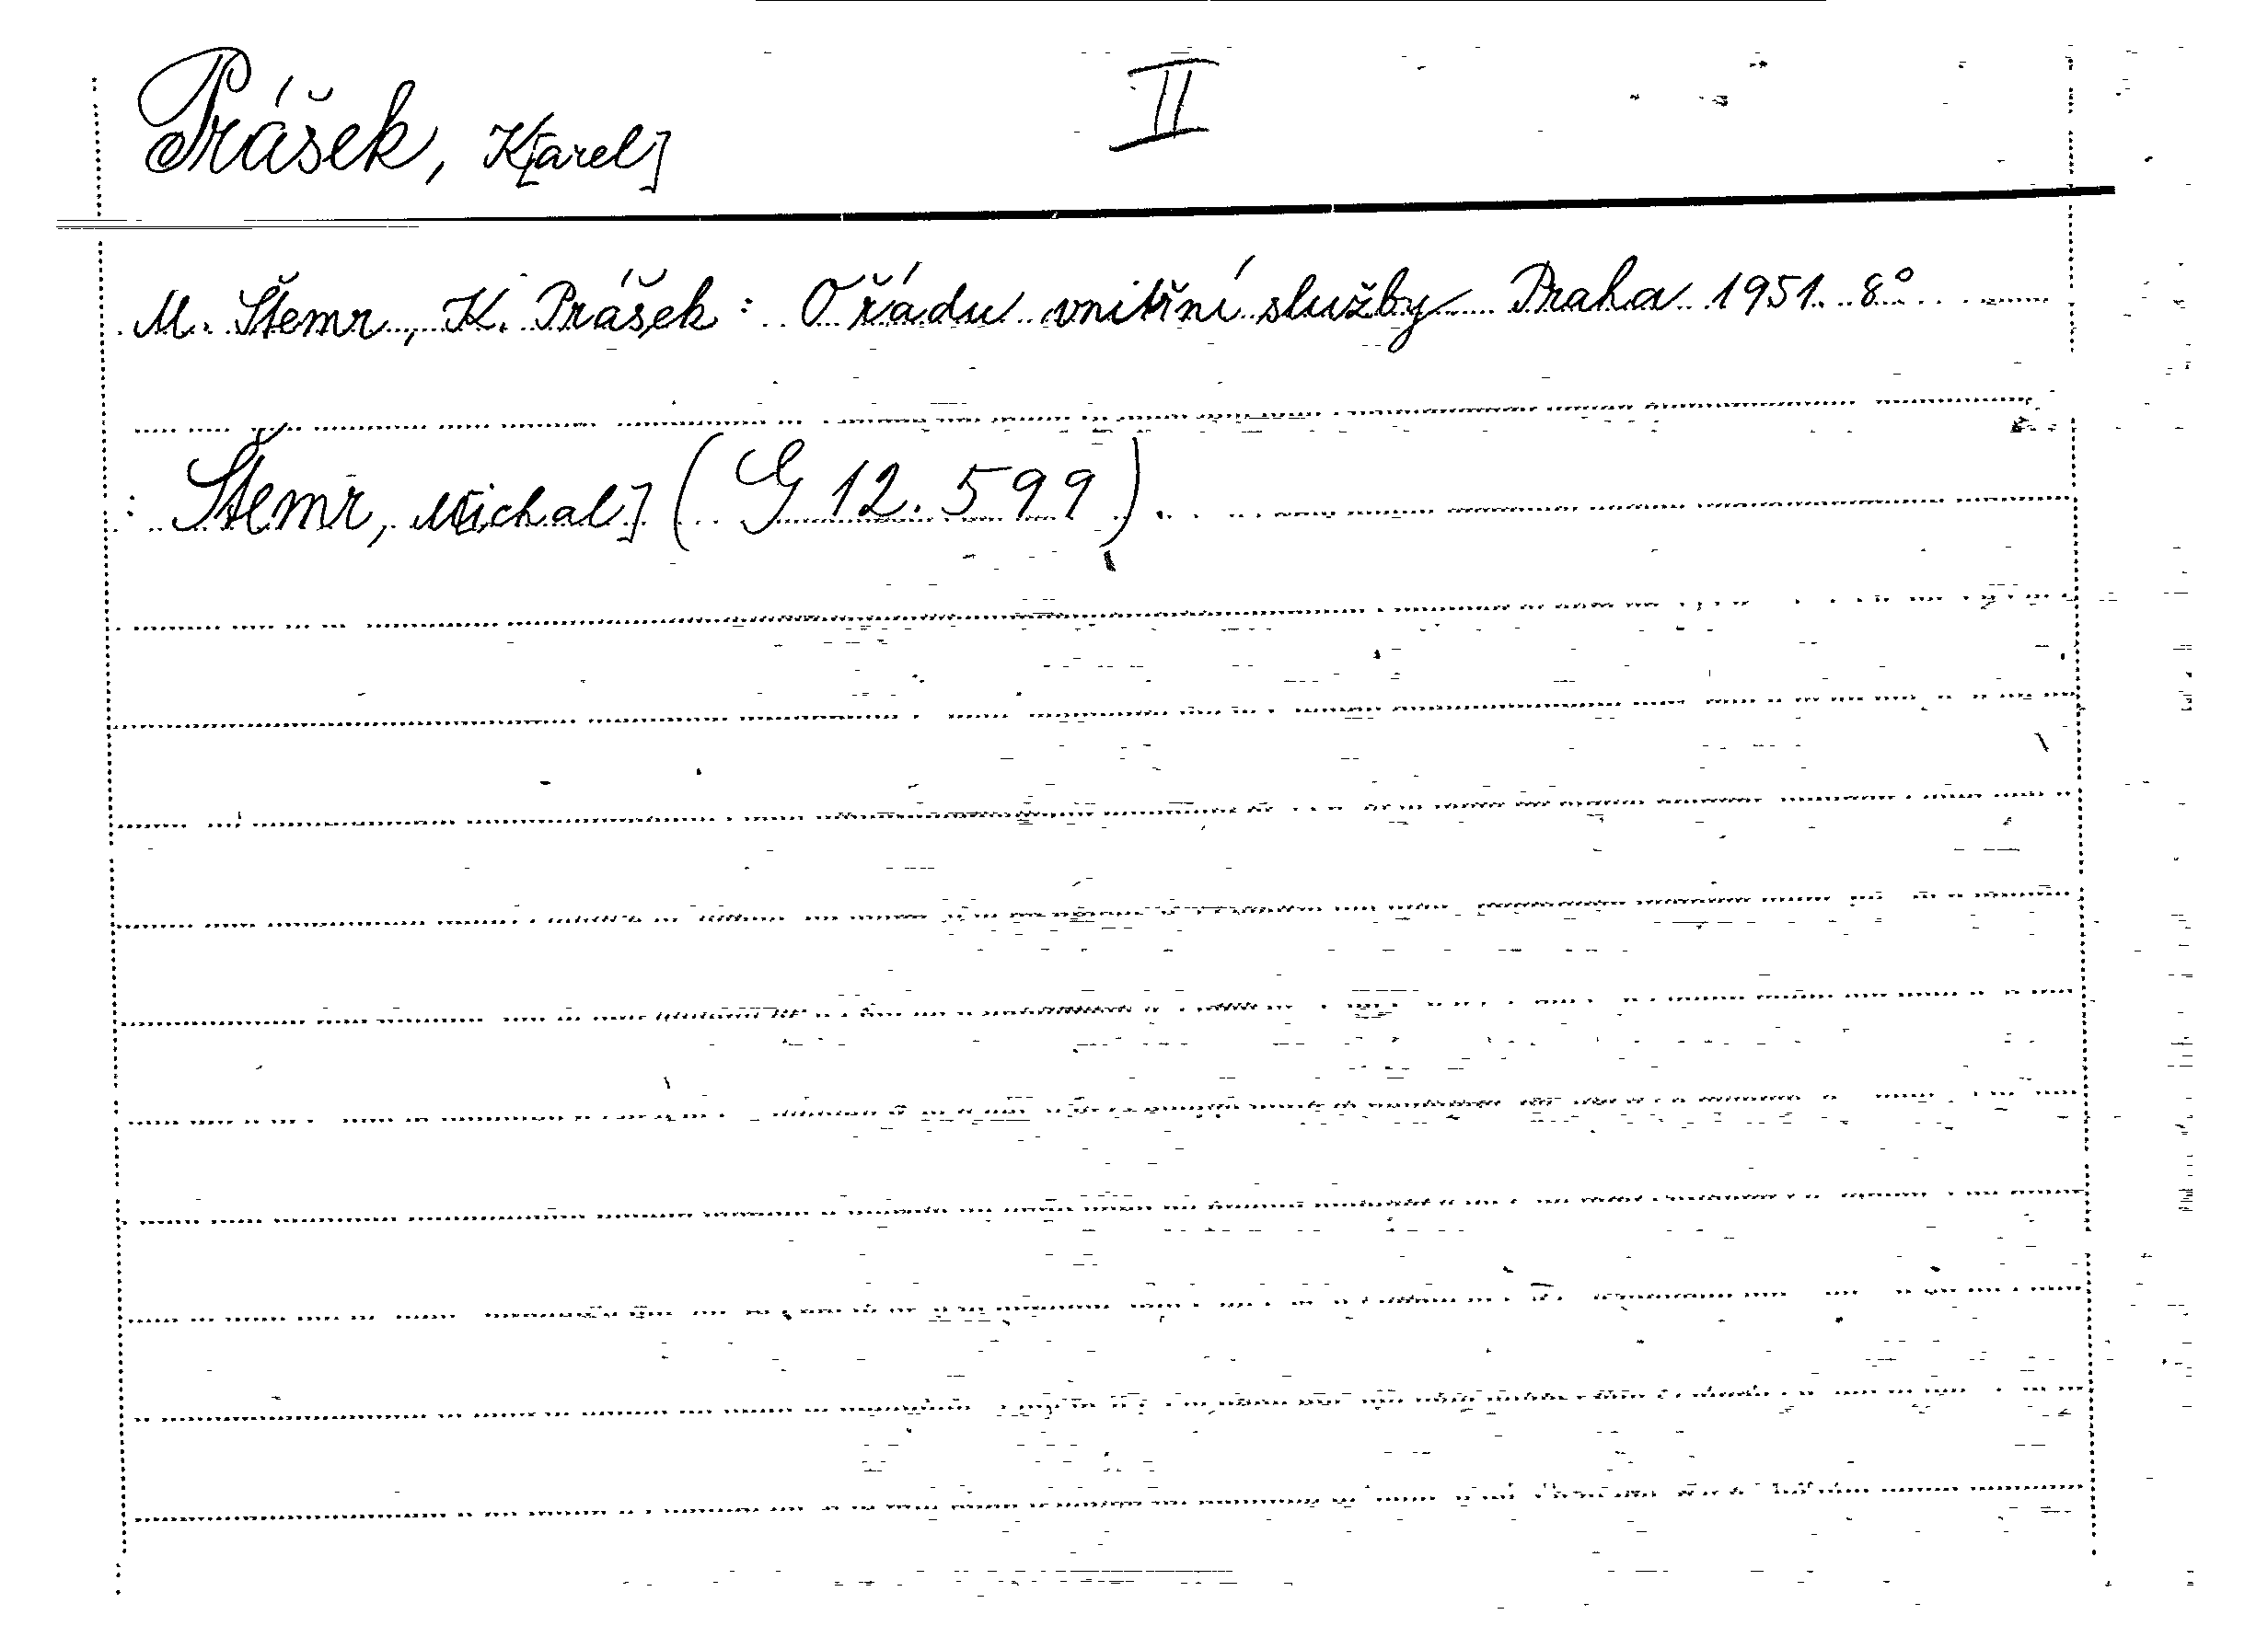 Prášek, K[arel] II
M. Štemr, K. Prášek: O řádu vnitřní služby Praha 1951. 8°
: Štemr, M[ichal] (G 12.599).